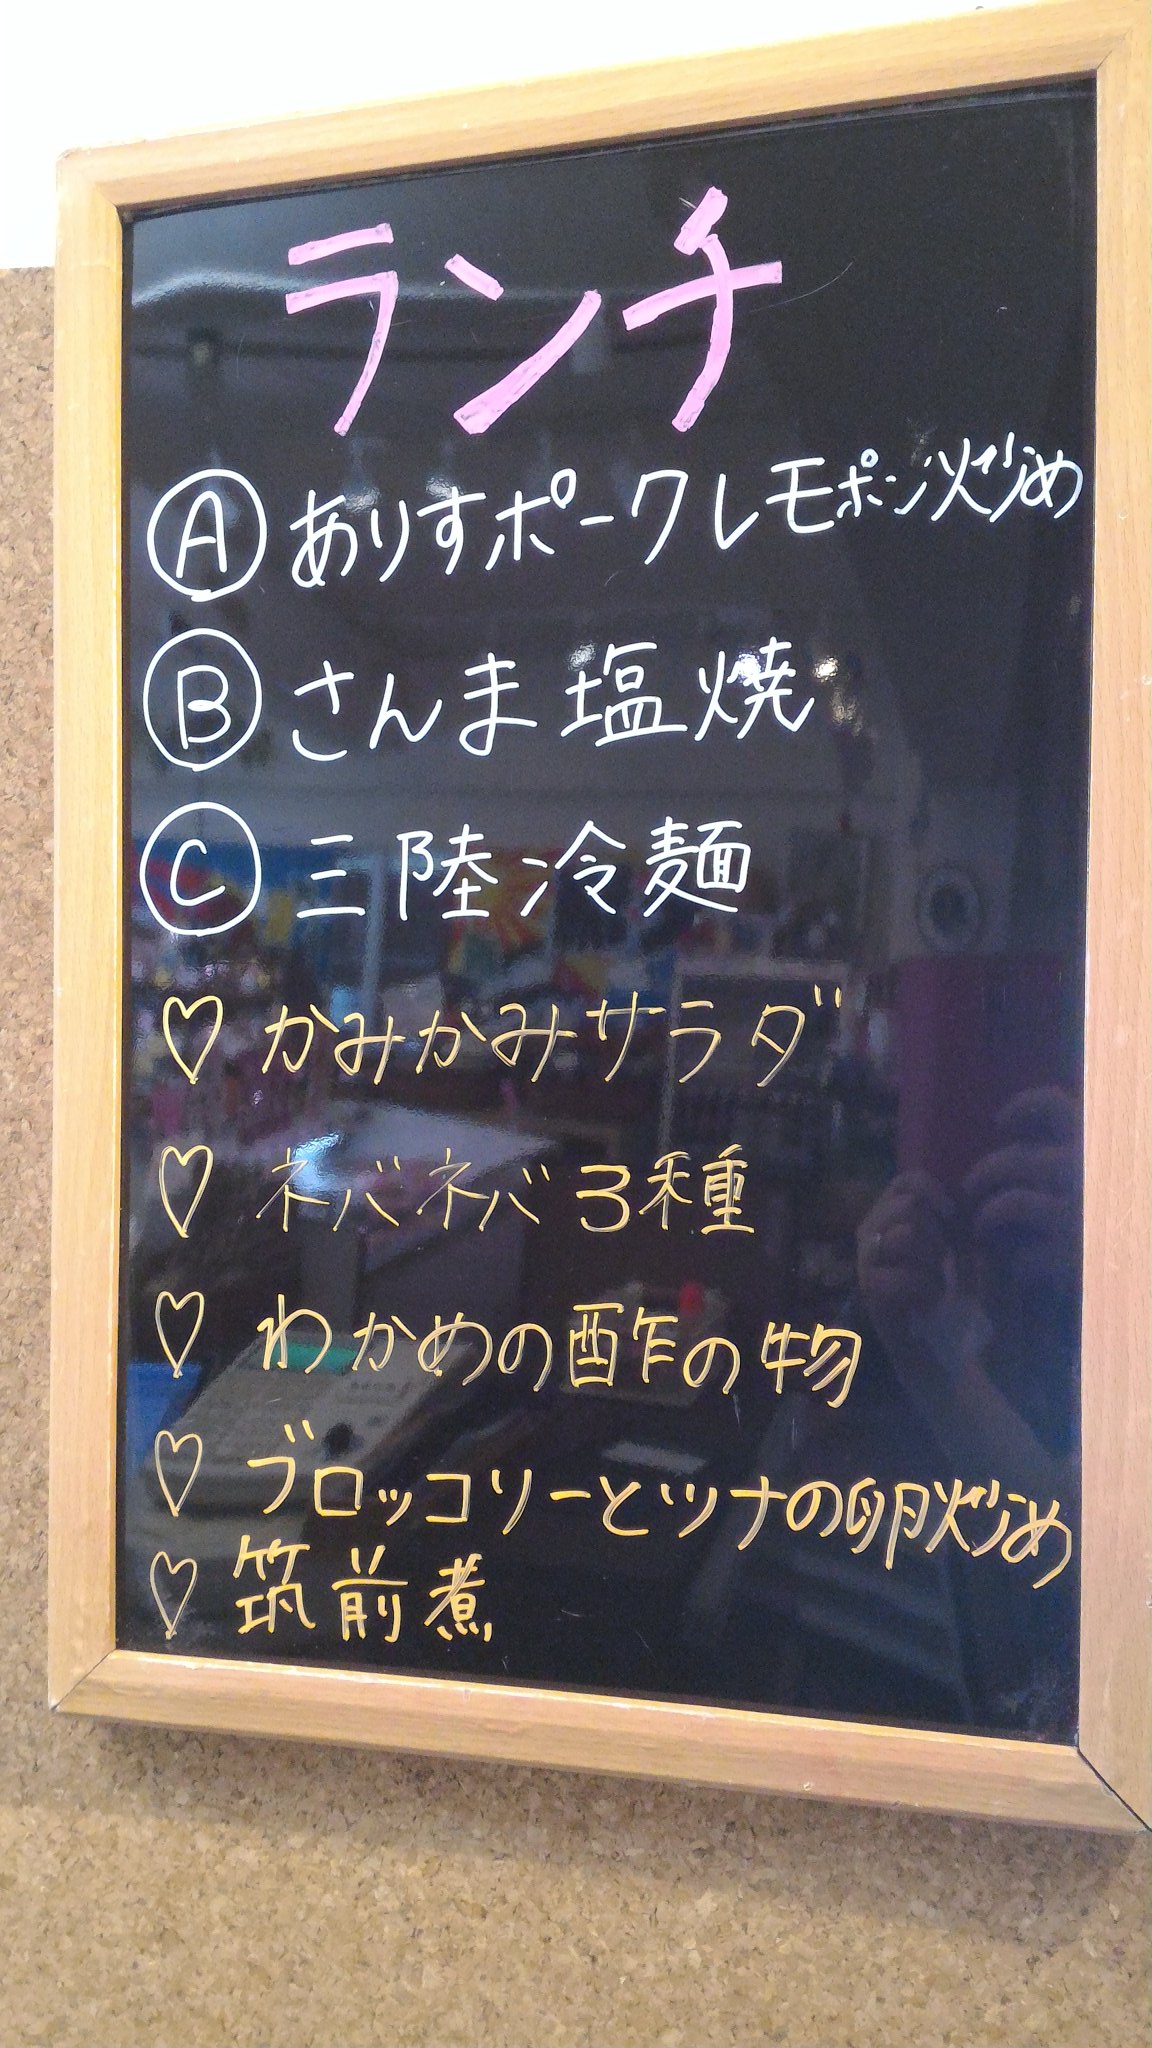 ランチ
Ⓐ ありすポークレモポン炒め
Ⓑ さんま塩焼
Ⓒ 三陸冷麺
♡ かみかみサラダ
♡ ネバネバ3種
♡ わかめの酢の物
♡ ブロッコリーとツナの卵炒め
♡ 筑前煮